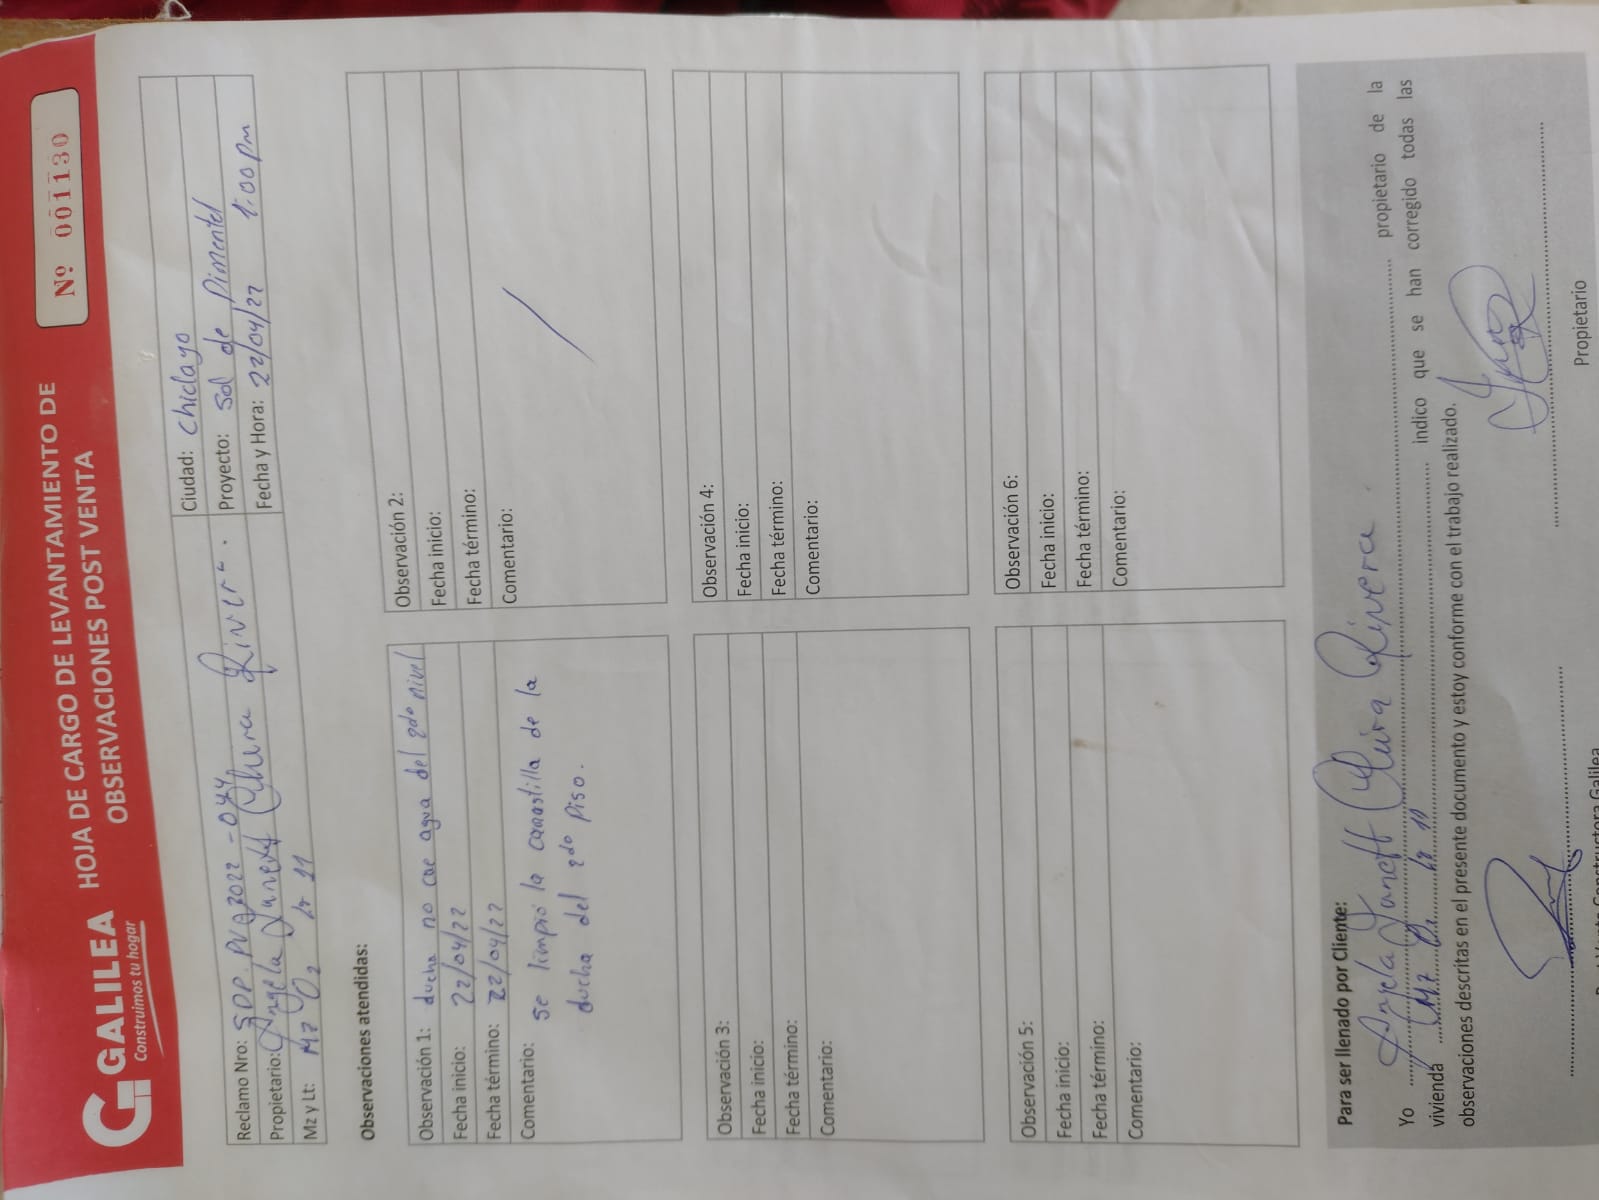 GALILEA
Construimos tu hogar
HOJA DE CARGO DE LEVANTAMIENTO DE
OBSERVACIONES POST VENTA
Nº 001130
Reclamo Nro: SDP. PVG2022-044
Ciudad: Chiclayo
Propietario: Angela Yanett Chura Rivera.
Proyecto: Sol de Pimentel
Mz y Lt: Mz O2 Lt 11
Fecha y Hora: 22/04/22 1:00 Pm
Observaciones atendidas:
Observación 1: ducha no cae agua del 2do nivel
Fecha inicio: 22/04/22
Fecha término: 22/04/22
Comentario: Se limpió la canastilla de la
ducha del 2do piso.
Observación 2:
Fecha inicio:
Fecha término:
Comentario:
Observación 3:
Fecha inicio:
Fecha término:
Comentario:
Observación 4:
Fecha inicio:
Fecha término:
Comentario:
Observación 5:
Fecha inicio:
Fecha término:
Comentario:
Observación 6:
Fecha inicio:
Fecha término:
Comentario:
Para ser llenado por Cliente:
Yo Angela Yanett Chura Rivera propietario de la
vivienda Mz O2 Lt 11 indico que se han corregido todas las
observaciones descritas en el presente documento y estoy conforme con el trabajo realizado.
Propietario
Constructora Galilea